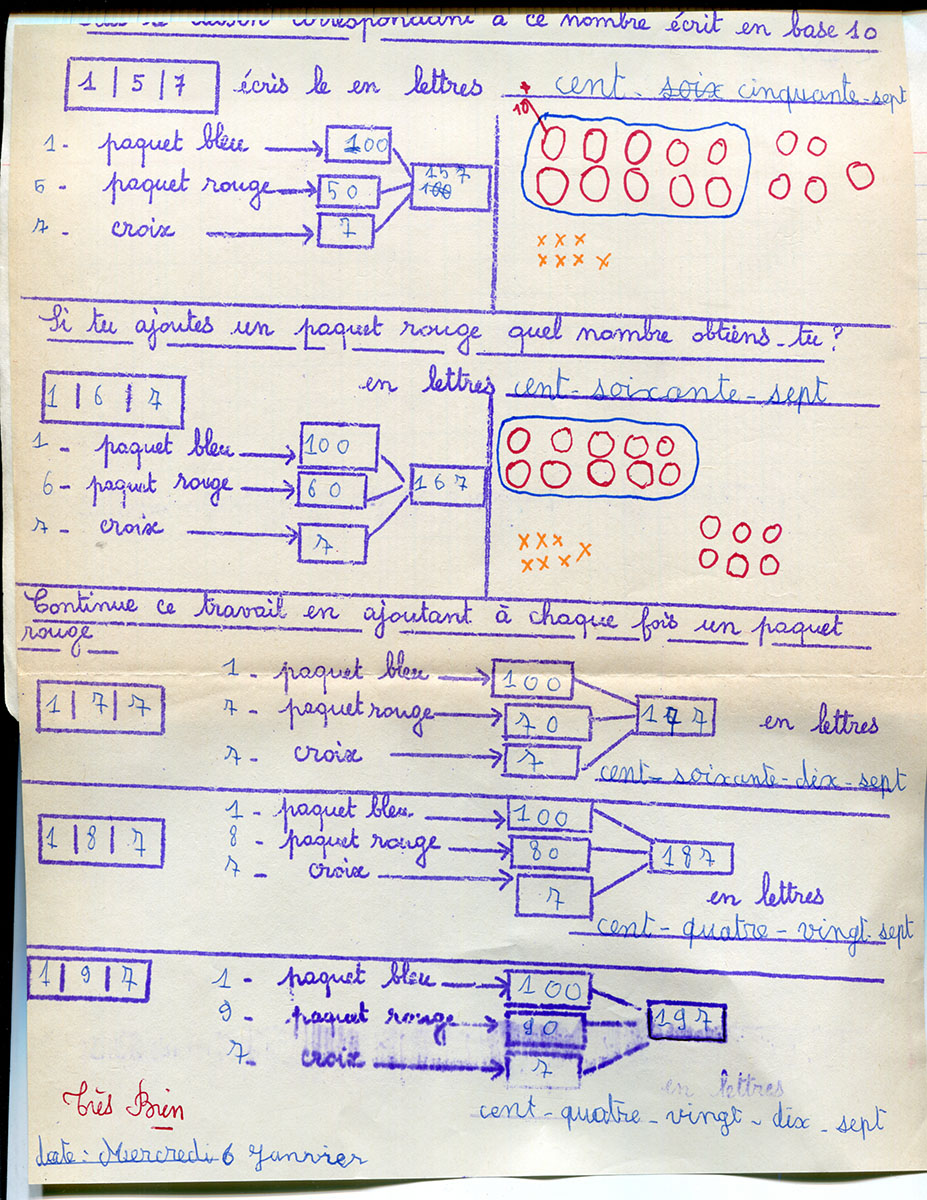 correspondant à ce nombre écrit en base 10
1 | 5 | 7 écris le en lettres cent - soix cinquante-sept
10
1 - paquet bleu 100
5 - paquet rouge 50 157
100
7 - croix 7
Si tu ajoutes un paquet rouge quel nombre obtiens-tu ?
1 | 6 | 7 en lettres cent-soixante-sept
1 - paquet bleu 100
6 - paquet rouge 60 167
7 - croix 7
Continue ce travail en ajoutant à chaque fois un paquet
rouge
1 - paquet bleu 100
1 | 7 | 7 7 - paquet rouge 70 177 en lettres
7 - croix 7
cent-soixante-dix-sept
1 - paquet bleu 100
1 | 8 | 7 8 - paquet rouge 80 187
7 - croix 7
en lettres
cent-quatre-vingt-sept
1 | 9 | 7 1 - paquet bleu 100
9 - paquet rouge 90 197
7 - croix 7
en lettres
Très Bien
cent-quatre-vingt-dix-sept
date : Mercredi 6 Janvier